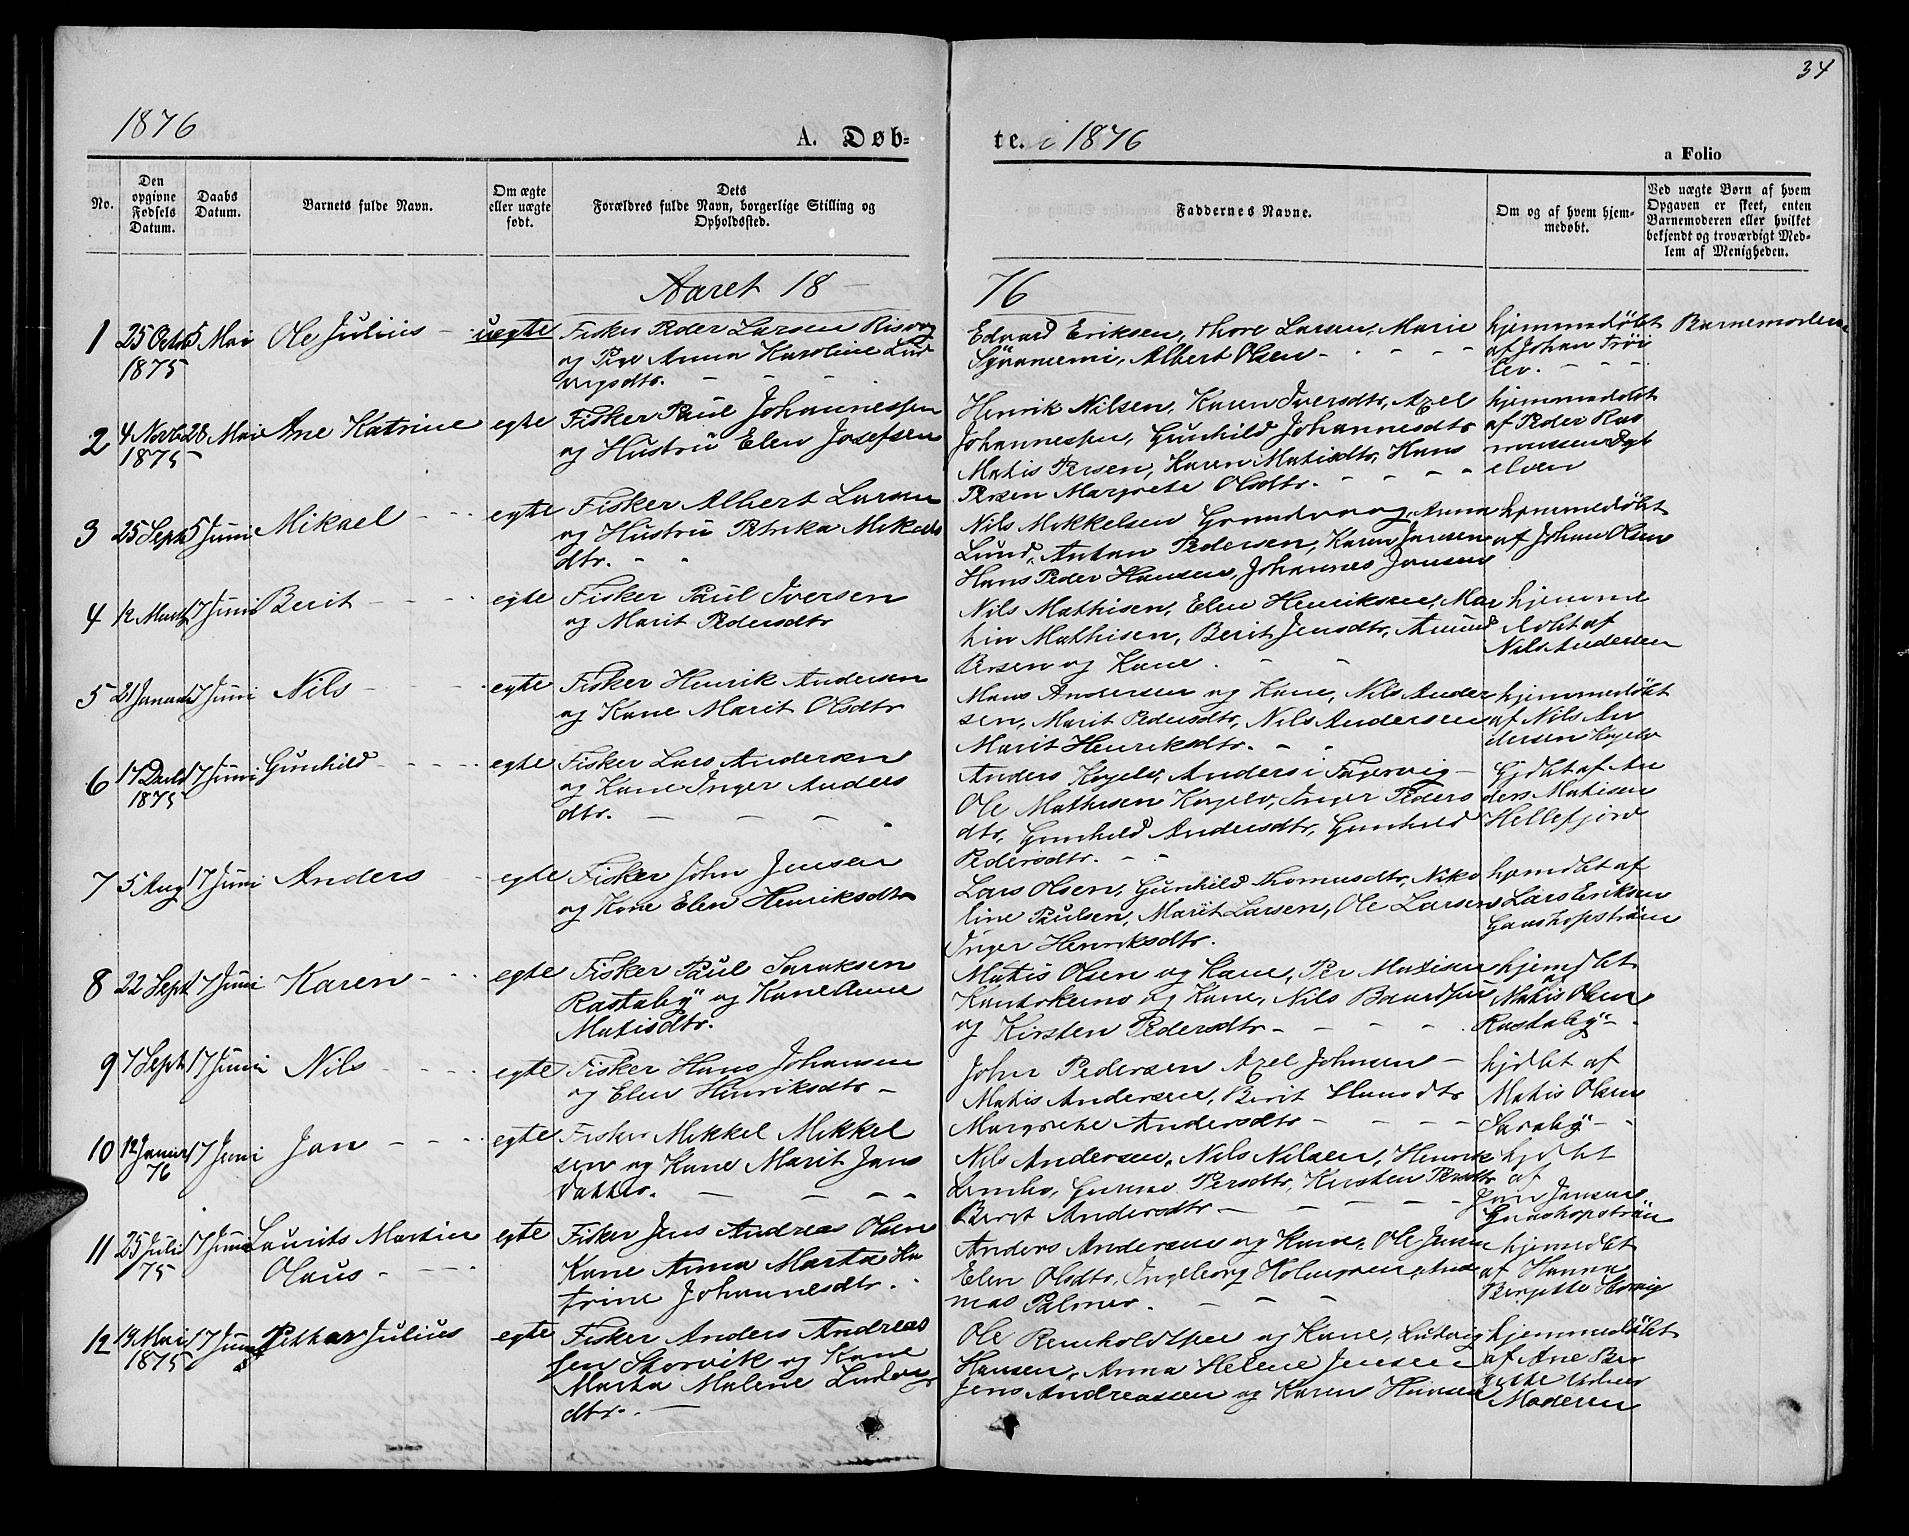 34
1876
A. Døb-
te. i 1876
a Folio
No.
Den opgivne Fødsels Datum.
Daabs Datum.
Barnets fulde Navn.
Om ægte eller uægte født.
Dets Forældres fulde Navn, borgerlige Stilling og Opholdssted.
Faddernes Navne.
Om og af hvem hjemmedøbt.
Ved uægte Børn af hvem Opgaven er skeet, enten Barnemoderen eller hvilket bekjendt og troværdigt Medlem af Menigheden.
Aaret 18
76
1 25 Octb 5 Mai Ole Julius uegte Fisker Peder Larsen Risvog
1875 og Pige Anna Karoline Lud
vigsdtr.
Edvard Eriksen, Thore Larsen, Marie
Albert Olsen
hjemmedøbt
af Johan
Barnemoderen
2 4 Novb 28 Mai Ane Katrine egte Fisker Paul Johannessen
1875 og Hustru Elen Josefsen
Henrik Nilsen, Karen Iversdtr, Axel
Johannessen, Gunhild Johannesdtr
Matis Persen, Karen Matisdtr, Hans
Persen Margrete Olsdtr.
hjemmedøbt
af Peder Ras
mussen
elven
3 25 Sept 5 Juni Mikael egte Fisker Albert Larsen
og Hustru Petrika Mikels
dtr.
Nils Mikkelsen Grundvaag, Anna
Lund, Anton Pedersen, Karen Jansen
Hans Peder Hansen, Johannes Jansen
hjemmedøbt
af Johan Olsen
4 12 Marts 17 Juni Berit egte Fisker Paul Iversen
og Marit Pedersdtr
Nils Mathisen, Elen Henriksen, Mar
Mathisen, Berit Jensdtr, Amund
Persen og Kone.
hjemme
døbt af
Nils Andersen
5 21 Januar 17 Juni Nils egte Fisker Henrik Andersen
og Kone Marit Olsdtr
Hans Andersen og Kone, Nils Ander
sen, Marit Pedersdtr, Nils Andersen
Marit Henriksdtr.
hjemmedøbt
af Nils An
dersen
6 17 Juni Gunhild egte Fisker Lars Andersen
1875 og Kone Inger Anders
dtr.
Anders Anders i Fagervig
Ole Mathisen Inger Peders
dtr, Gunhild Andersdtr, Gunhild
Pedersdtr.
hjdbt af An
ders Matisen
Hellefjord
7 5 Aug 17 Juni Anders egte Fisker John Jensen
og Kone Elen Henriksdtr
Lars Olsen, Gunhild Thomasdtr, Niko
line Paulsen, Marit Larsen, Ole Larsen
Inger Henriksdtr.
hjemdbt af
Lars Eriksen
8 22 Sept 17 Juni Karen egte Fisker Paul Isaksen
Rastaby og Kone Anne
Matisdtr.
Matis Olsen og Kone, Per Matisen
Kautokeino og Kone, Nils Baardsen
og Kirsten Pedersdtr
hjemdbt
af
Matis Olsen
Rastaby
9 7 Sept 17 Juni Nils egte Fisker Hans Johansen
og Elen Henriksdtr
John Pedersen Axel Johnsen
Matis Andersen, Berit Hansdtr
Margrete Andersdtr
hjdbt af
Matis Olsen
10 12 Januar 17 Juni Jon egte Fisker Mikkel Mikkel
76 sen og Kone Marit Jons
datter.
Nils Andersen, Nils Nilsen, Henrik
Persdtr, Kirsten Persdtr
Berit Andersdtr
hjdbt
af
Jon Jonsen
11 25 Juli 17 Juni Laurits Martin egte Fisker Jens Andreas Olsen
75 Olaus Kone Anna Marta Ka
trine Johannesdtr.
Anders Andersen og Kone, Ole Jensen
Elen Olsdtr, Ingeborg Holmgren, And
reas Palmer.
hjemdbt
af Hanna
Bergitte
12 19 Mai 17 Juni Petter Julius egte Fisker Anders Andreas
1875 sen Storvik og Kone
Marta Malene Ludvigs
dtr.
Ole Reinholdtsen og Kone, Ludvig
Hansen, Anna Helene Jensen
Jens Andreassen og Karen Hansen
hjemmedøbt
af Ane Ber
gitte
Moderen